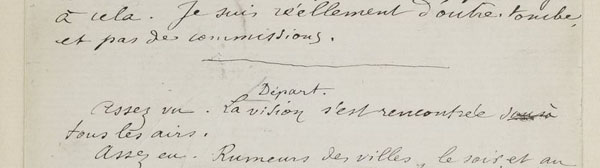 à cela. Je suis réellement d'outre-tombe,
et pas de commissions.
Départ.
Assez vu. La vision s'est rencontrée à
tous les airs.
Assez eu. Rumeurs des villes, le soir, et au